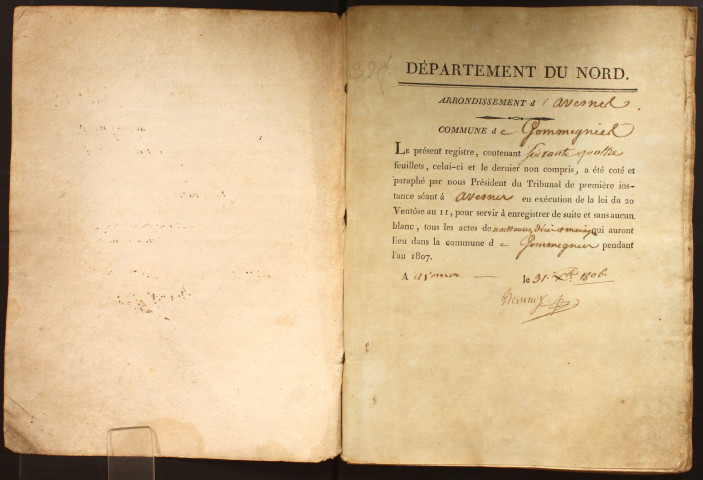 DÉPARTEMENT DU NORD.
ARRONDISSEMENT d'avesnes.
COMMUNE de Gommegnies
LE présent registre, contenant soixante quatre
feuillets, celui-ci et le dernier non compris, a été coté et
paraphé par nous Président du Tribunal de première ins-
tance séant à avesnes en exécution de la loi du 20
Ventôse an 11, pour servir à enregistrer de suite et sans aucun
blanc, tous les actes de naissances, décès et mariages qui auront
lieu dans la commune de Gommegnies pendant
l'an 1807.
A avesnes le 31 Xbre 1806.